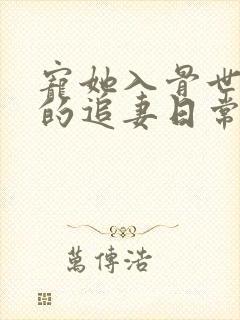 寵她入骨世
的追妻日常
萬傳浩